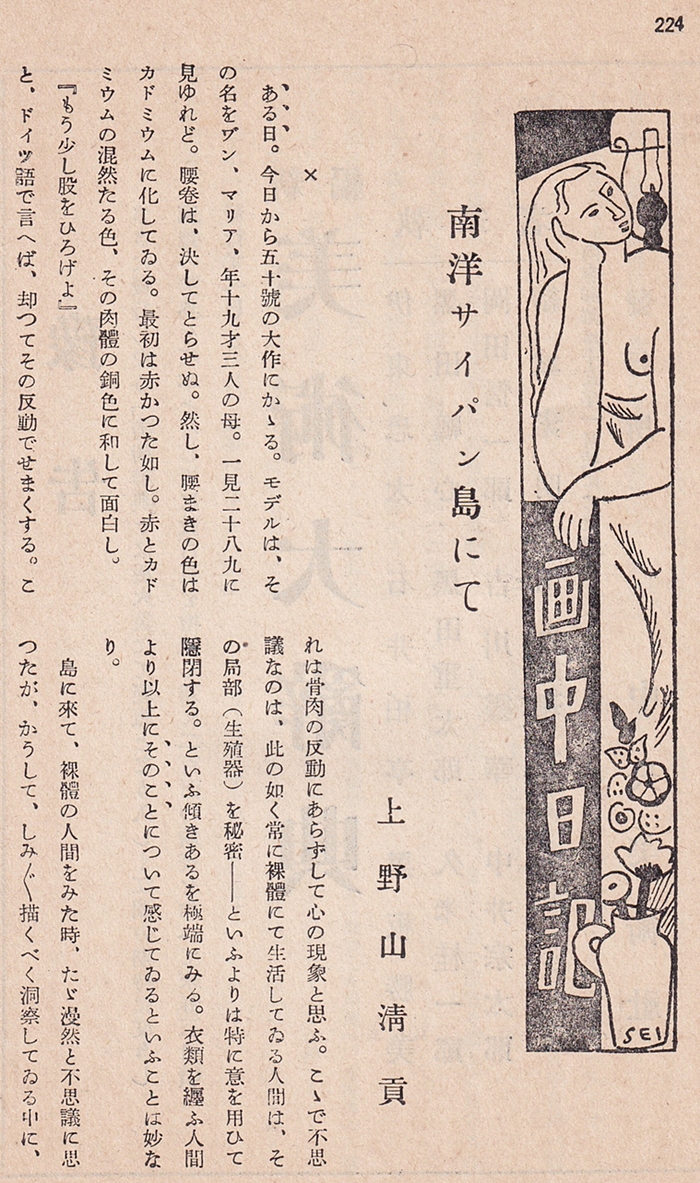 224
画中日記
SEI
南洋サイパン島にて
上野山淸貢
×
ある日。今日から五十號の大作にかゝる。モデルは、そ
の名をヷン、マリア、年十九才三人の母。一見二十八九に
見ゆれど。腰卷は、決してとらせぬ。然し、腰まきの色は
カドミウムに化してゐる。最初は赤かつた如し。赤とカド
ミウムの混然たる色、その肉體の銅色に和して面白し。
『もう少し股をひろげよ』
と、ドイツ語で言へば、却つてその反動でせまくする。こ
れは骨肉の反動にあらずして心の現象と思ふ。こゝで不思
議なのは、此の如く常に裸體にて生活してゐる人間は、そ
の局部（生殖器）を秘密――といふよりは特に意を用ひて
隱閉する。といふ傾きあるを極端にみる。衣類を纒ふ人間
より以上にそのことについて感じてゐるといふことは妙な
り。
島に來て、裸體の人間をみた時、たゞ漫然と不思議に思
つたが、かうして、しみ〴〵描くべく洞察してゐる中に、